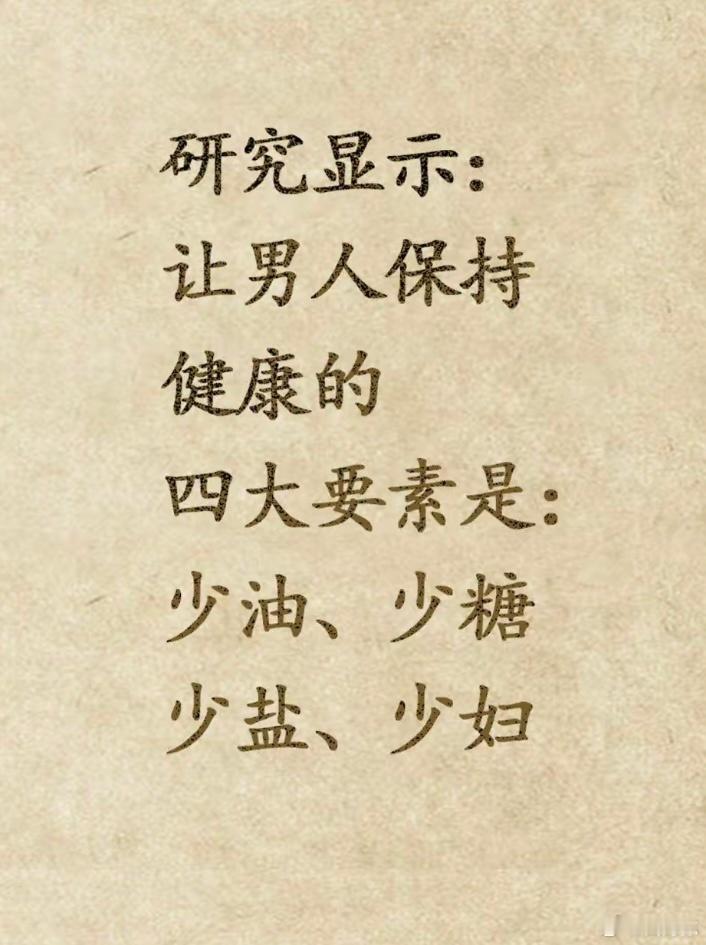 研究显示：
让男人保持
健康的
四大要素是：
少油、少糖
少盐、少妇